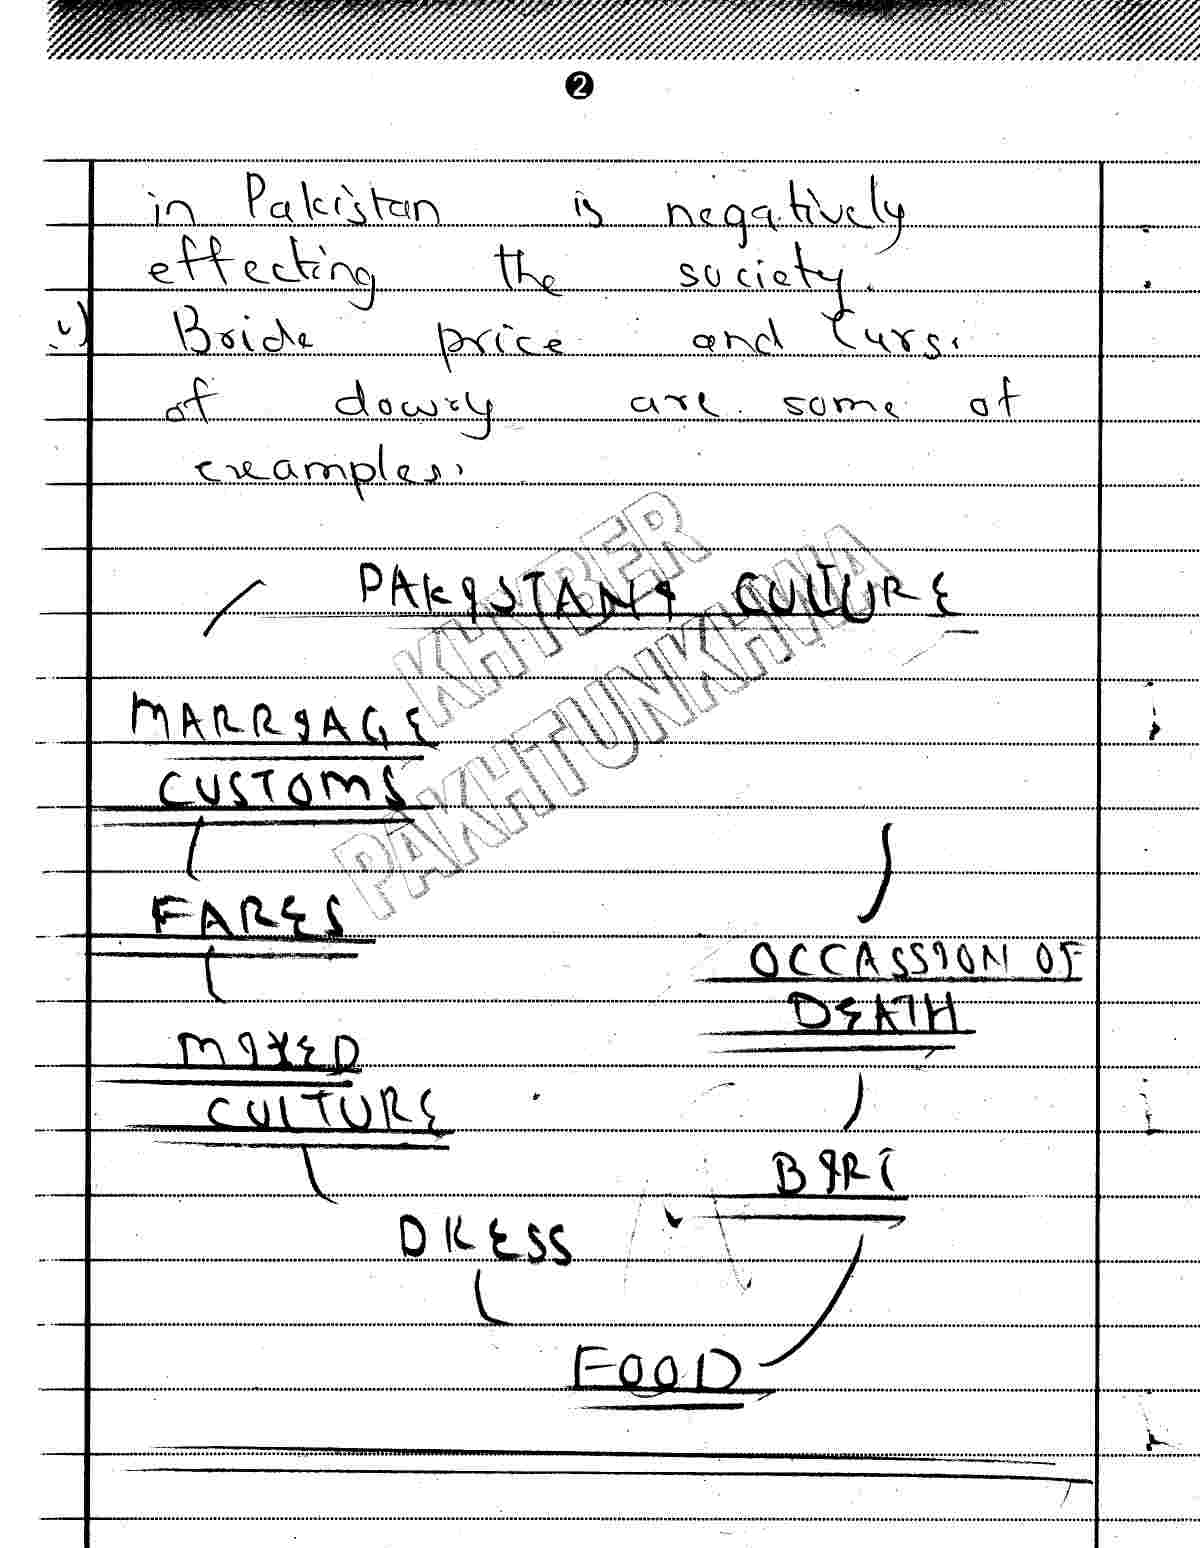 2
in Pakistan is negatively
effecting the society.
v) Bride price and Curs.
of dowry are some of
examples.
KHYBER
PAKHTUNKHWA
PAKISTANI CULTURE
MARRIAGE
CUSTOMS
FARES
MIXED
CULTURE
DRESS
FOOD
OCCASSION OF
DEATH
BIRT